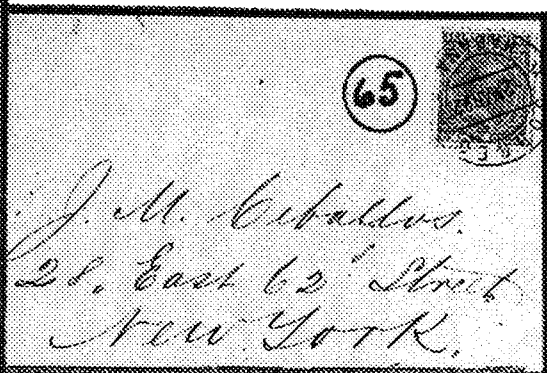 65
J. M. Ceballos.
28, East 62 Street
New York.